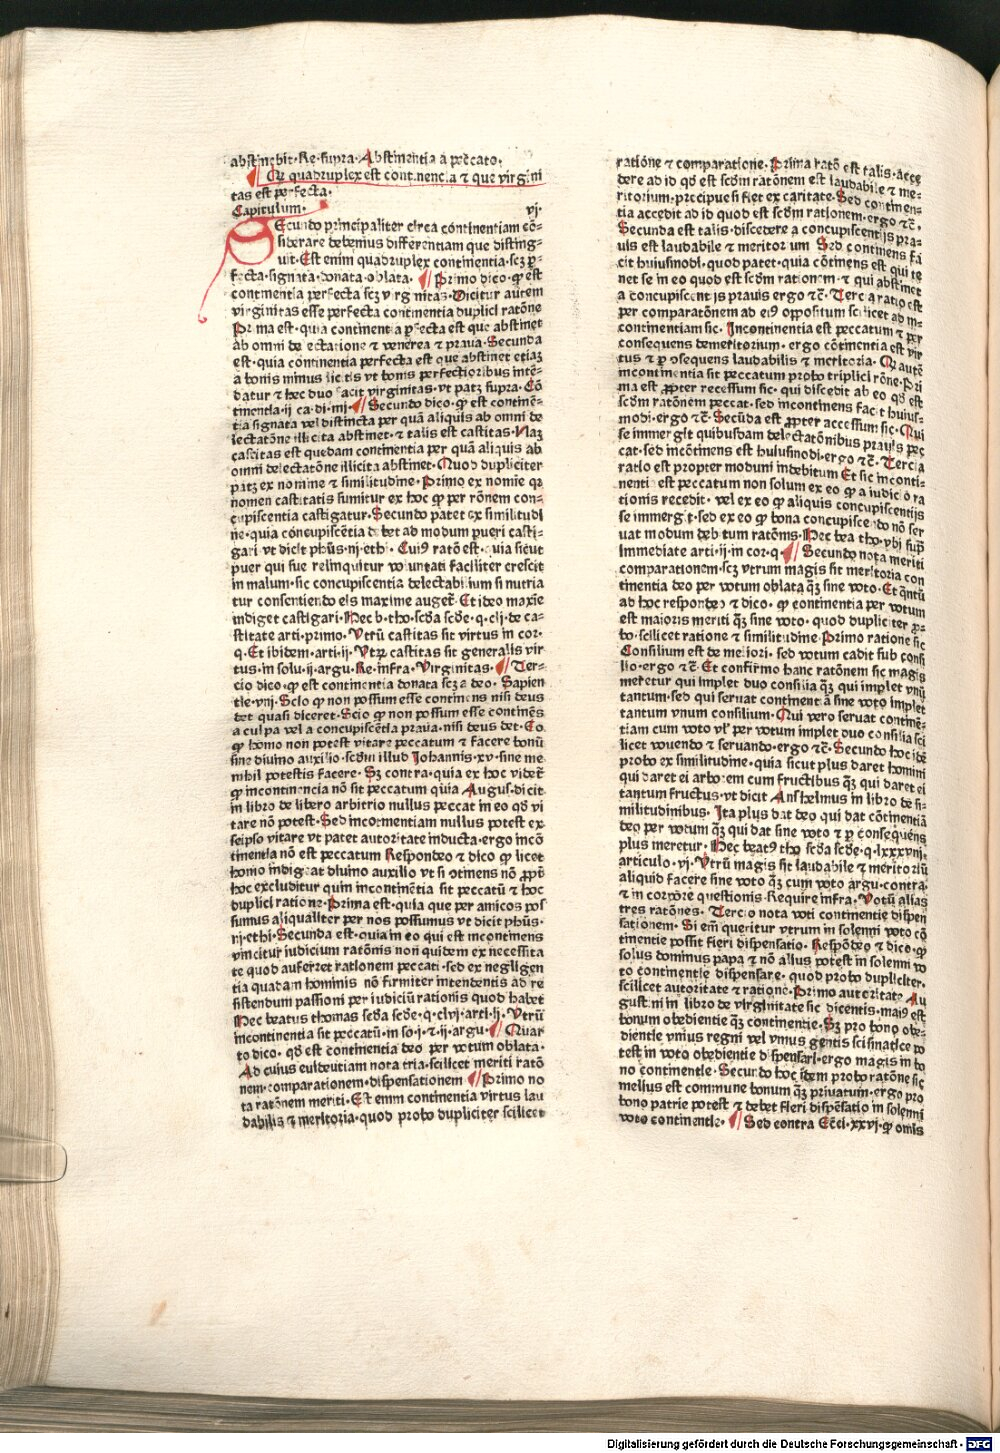 abstinebit·Re·supra·Abstinentia a peccato·
¶ Qꝙ quadruplex est continencia ⁊ que virgini
tas est perfecta·
Capitulum· vj·
SEcundo principaliter circa continentiam cō⸗
siderare debemus differentiam que disting⸗
uit·Est enim quadruplex continentia·scꝫ ꝑ⸗
fecta·signata·donata·oblata· ¶ Primo dico·ꝙ est
continentia perfecta scꝫ virginitas·Dicitur autem
virginitas esse perfecta continentia duplici ratōne
Prima est·quia continentia ꝑfecta est que abstinet
ab omni delectatione ⁊ venerea ⁊ praua·Secunda
est·quia continentia perfecta est que abstinet etiaꝫ
a bonis minus licitis vt bonis perfectioribus intē⸗
datur ⁊ hec duo facit virginitas·vt patꝫ supra·Cō
tinentia·ij ca·di·iiij· ¶ Secundo dico·ꝙ est continē⸗
tia signata vel distincta per quā aliquis ab omni de
lectatōne illicita abstinet·⁊ talis est castitas·Naꝫ
castitas est quedam continentia per quā aliquis ab
omni delectatōne illicita abstinet·Quod dupliciter
patꝫ ex nomine ⁊ similitudine·Primo ex nomīe qꝛ
nomen castitatis sumitur ex hoc ꝙ per rōnem con⸗
cupiscentia castigatur·Secundo patet ex similitudi
ne·quia concupiscētia debet ad modum pueri casti⸗
gari·vt dicit phūs·iij·ethi· Cuiꝰ ratō est·quia sicut
puer qui sue relinquitur voluntati faciliter crescit
in malum·sic concupiscentia delectabilium si nutria
tur consentiendo eis maxime auget᷑·Et ideo maxīe
indiget castigari·Hec b·tho·scd̄a scd̄e·q·clj·de ca⸗
stitate arti·primo·Vtrū castitas sit virtus in cor·
q·Et ibidem·arti·ij·Vtꝝ castitas sit generalis vir
tus·in solu·ij·argu·Re·infra·Virginitas· ¶ Ter⸗
cio dico·ꝙ est continentia donata scꝫ a deo·Sapien
tie·viij·Scio ꝙ non possum esse continens nisi deus
det quasi diceret·Scio ꝙ non possum esse continēs
a culpa vel a concupiscētia praua·nisi deus det·Eo
ꝙ homo non potest vitare peccatum ⁊ facere bonū
sine diuino auxilio·scd̄m illud Johannis·xv·sine me
nihil potestis facere·Sꝫ contra·quia ex hoc videt᷑
ꝙ incontinencia nō sit peccatum quia Augus·dicit
in libro de libero arbitrio nullus peccat in eo qd̄ vi
tare nō potest·Sed incontinentiam nullus potest ex
seipso vitare vt patet autoritate inducta·ergo incō
tinentia nō est peccatum Respondeo ⁊ dico ꝙ licet
homo indigeat diuino auxilio vt sit ꝯtinens nō ꝓpt᷑
hoc excluditur quin incontinētia sit peccatū ⁊ hoc
duplici ratione·Prima est·quia que per amicos pos
sumus aliqualiter per nos possumus vt dicit phūs·
iij·ethi·Secunda est·quia in eo qui est incontinens
vincitur iudicium ratōnis non quidem ex necessita
te quod auferret rationem peccati·sed ex negligen
tia quadam hominis nō firmiter intendentis ad re
sistendum passioni per iudiciū rationis quod habet
Hec beatus thomas scd̄a scd̄e·q·clvj·arti·ij·Vtrū
incontinentia sit peccatū·in so·j·⁊·ij·argu· ¶ Quar
to dico·qd̄ est continentia deo per votum oblata·
Ad cuius euidentiam nota tria·scilicet meriti ratō
nem·comparationem·dispensationem ¶ Primo no
ta ratōnem meriti·Est enim continentia virtus lau
dabilis ⁊ meritoria·quod probo dupliciter scilicet
ratiōne ⁊ comparatione·Prima ratō est talis·acce
dere ad id qd̄ est scd̄m ratōnem est laudabile ⁊ me⸗
ritorium·precipue si fiet ex caritate·Sed continen⸗
tia accedit ad id quod est scd̄m rationem·ergo ⁊c̄·
Secunda est talis·discedere a concupiscentijs pra⸗
uis est laudabile ⁊ meritorium Sed continens fa
cit huiusmodi·quod patet·quia cōtinens est qui te
net se in eo quod est scd̄m rationem·⁊ qui abstinet
a concupiscentijs prauis ergo ⁊c̄·Tercia ratio est
per comparatōnem ad eiꝰ oppositum scilicet ad in⸗
continentiam sic·Incontinentia est peccatum ⁊ per
consequens demeritorium·ergo cōtinentia est vir
tus ⁊ ꝑ ꝯsequens laudabilis ⁊ meritoria·Qꝙ autē
incontinentia sit peccatum probo triplici rōne·Pri
ma est·ꝓpter recessum sic·qui discedit ab eo qd̄ est
scd̄m ratōnem peccat·sed incontinens facit huius⸗
modi·ergo ⁊c̄·Secūda est ꝓpter accessum sic·Qui
se immergit quibusdam delectatōnibus prauis pec
cat·sed incōtinens est huiusmodi·ergo ⁊c̄·Tercia
ratio est propter modum indebitum Et sic inconti⸗
nentia est peccatum non solum ex eo ꝙ a iudicio ra
tionis recedit·vel ex eo ꝙ aliquis concupiscentijs
se immergit·sed ex eo ꝙ bona concupiscendo nō ser
uat modum debitum ratōnis·Hec bea tho·vbi supͣ
immediate arti·ij·in cor·q· ¶ Secundo nota meriti
comparationem·scꝫ vtrum magis sit meritoria con
tinentia deo per votum oblata qꝫ sine voto·Et qͣntū
ad hoc respondeo ⁊ dico·ꝙ continentia per votum
est maioris meriti qꝫ sine voto·quod dupliciter ꝓ⸗
bo·scilicet ratione ⁊ similitudine·Primo ratione sic
Consilium est de meliori·sed votum cadit sub consi
lio·ergo ⁊c̄·Et confirmo hanc ratōnem sic magis
meretur qui implet duo consilia qꝫ qui implet vnū
tantum·sed qui seruat continentiā sine voto implet
tantum vnum consilium·Qui vero seruat continē⸗
tiam cum voto vl̕ per votum implet duo consilia sci
licet vouendo ⁊ seruando·ergo ⁊c̄·Secundo hoc idē
probo ex similitudine·quia sicut plus daret homini
qui daret ei arborem cum fructibus qꝫ qui daret ei
tantum fructus·vt dicit Anshelmus in libro de si⸗
militudinibus·Ita plus dat deo qui dat cōtinentiā
deo per votum qꝫ qui dat sine voto ⁊ ꝑ consequens
plus meretur·Hec beatꝰ tho scd̄a scd̄e·q·lxxxviij·
articulo·vj·Vtrū magis sit laudabile ⁊ meritoriū
aliquid facere sine voto qꝫ cum voto argu·contra·
⁊ in corpore questionis·Require infra·Votū alias
tres ratōnes·Tercio nota voti continentie dispen
sationem·Si em̄ queritur vtrum in solenni voto cō
tinentie possit fieri dispensatio·Respōdeo ⁊ dico·ꝙ
solus dominus papa ⁊ nō alius potest in solenni vo
to continentie dispensare·quod probo dupliciter·
scilicet autoritate ⁊ ratione·Primo autoritate Au
gustini in libro de virginitate sic dicentis·maiꝰ est
bonum obedientie qꝫ continentie·Sꝫ pro bono obe⸗
dientie vnius regni vel vnius gentis scismatice po
test in voto obedientie dispensari·ergo magis in bo
no continentie·Secundo hoc idem probo ratōne sic
melius est commune bonum qꝫ priuatum·ergo pro
bono patrie potest ⁊ debet fieri dispēsatio in solenni
voto continentie· ¶ Sed contra Ecc̄i·xxvj·ꝙ omis
Digitalisierung gefördert durch die Deutsche Forschungsgemeinschaft · DFG